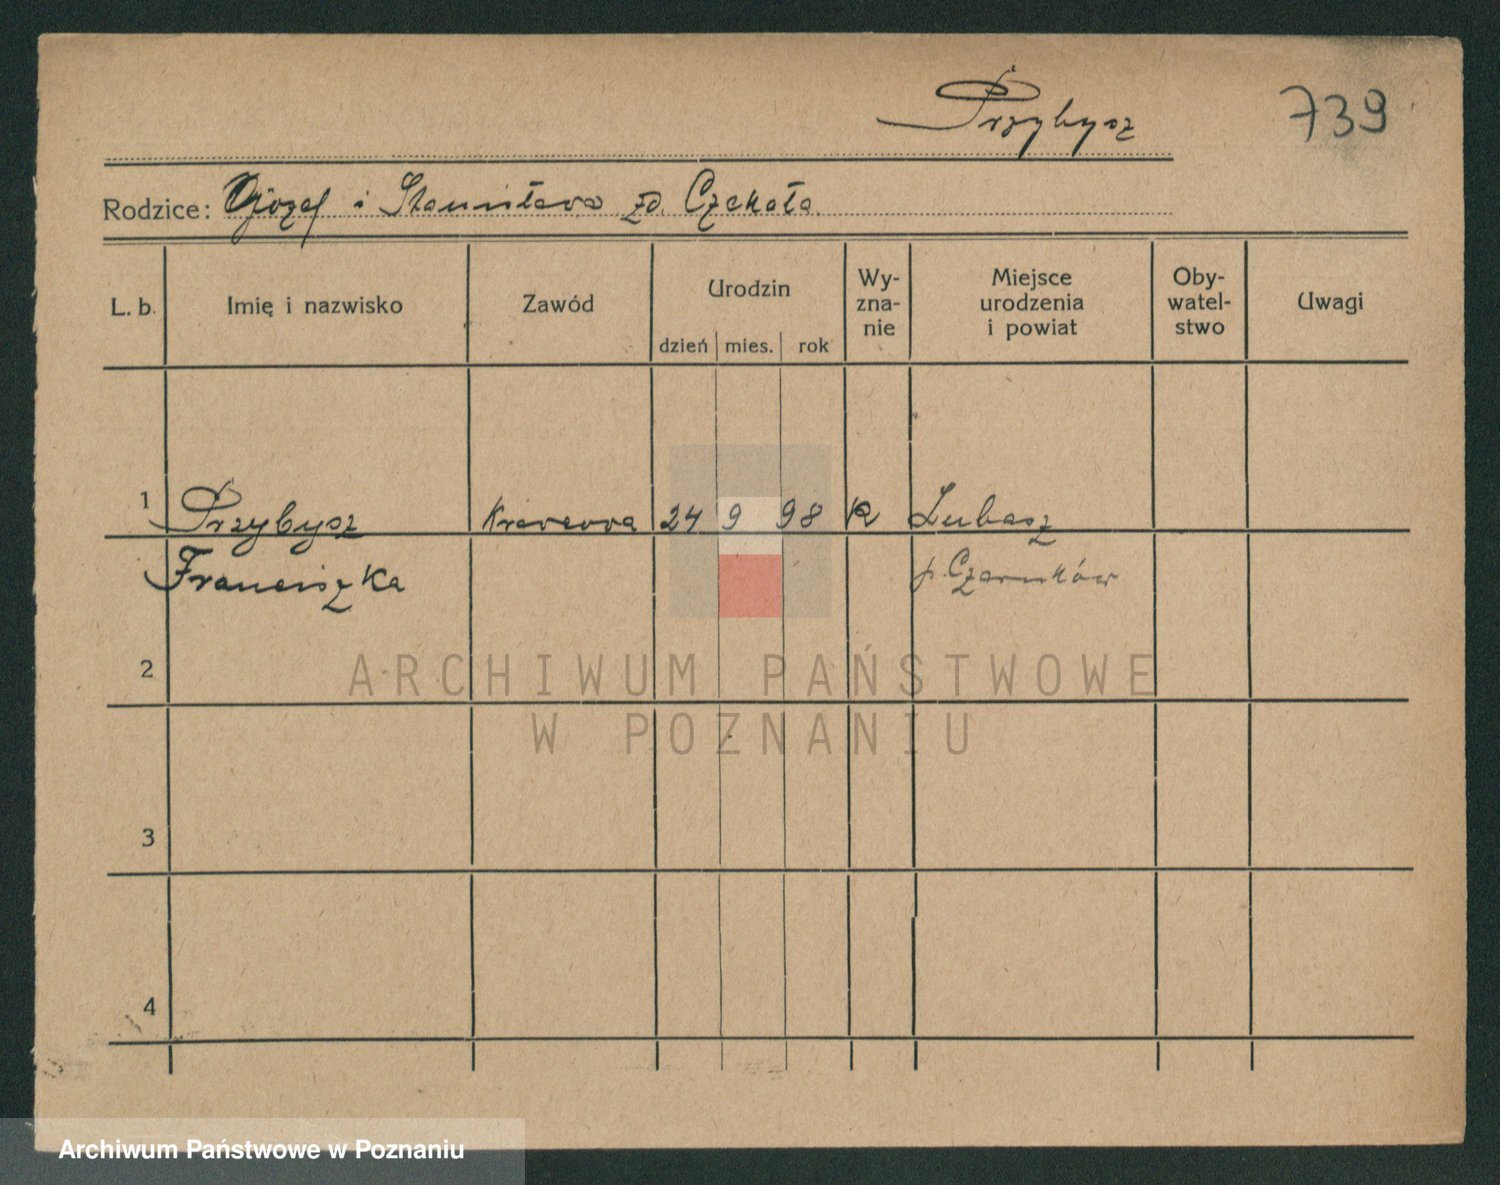 Przybysz
739
Rodzice: Józef i Stanisława zd. Czekała
L. b. Imię i nazwisko Zawód Urodzin dzień mies. rok Wy-zna-nie Miejsce urodzenia i powiat Oby-watel-stwo Uwagi
1 Przybysz Krawcowa 24 9 98 R Lubasz
Franciszka p. Czarnków
2
ARCHIWUM PAŃSTWOWE
W POZNANIU
3
4
Archiwum Państwowe w Poznaniu